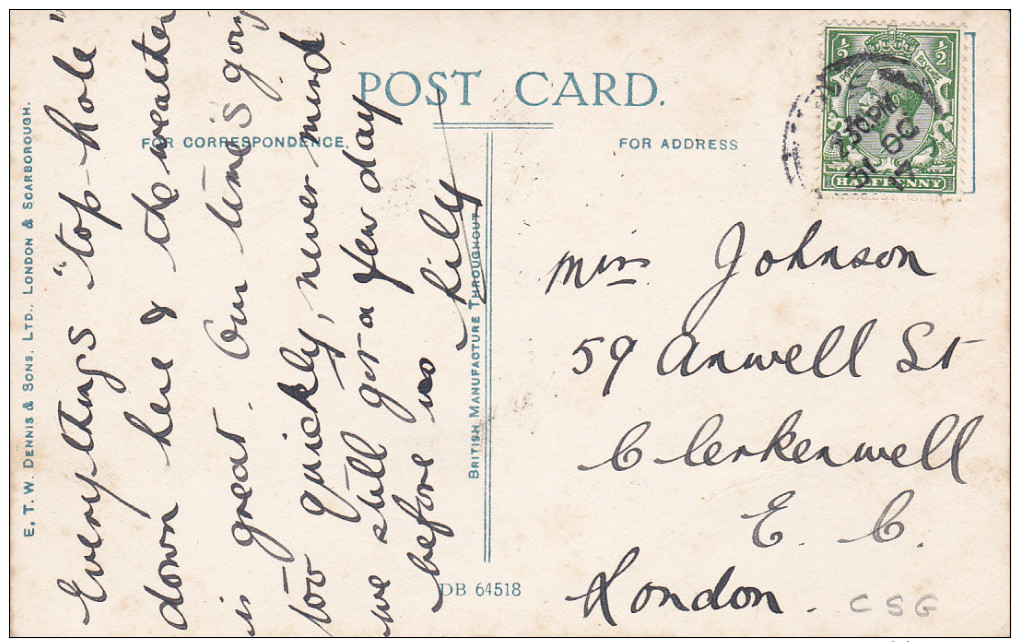 POST CARD.
FOR CORRESPONDENCE.
FOR ADDRESS
E. T. W. DENNIS & SONS, LTD., LONDON & SCARBOROUGH.
BRITISH MANUFACTURE THROUGHOUT
DB 64518
½ ½
HALFPENNY
2 30 PM
31 OC
17
Everythings "top-hole"
down here & the weather
is great. Our time's going
too quickly, never mind
we still got a few day
before us Lily
Miss Johnson
59 Anwell St
Clerkenwell
E. C.
London.
CSG